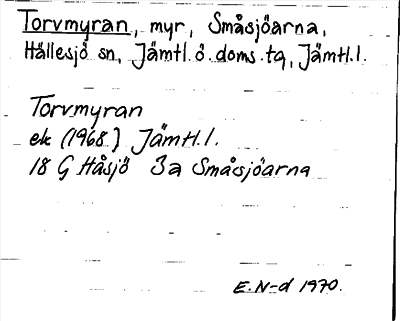 Torvmyran, myr, Småsjöarna,
Hällesjö sn, Jämtl. ö. doms. tg, Jämtl. l.
Torvmyran
ek (1968) Jämtl. l.
18 G Håsjö 3a Småsjöarna
E. N-d 1970.